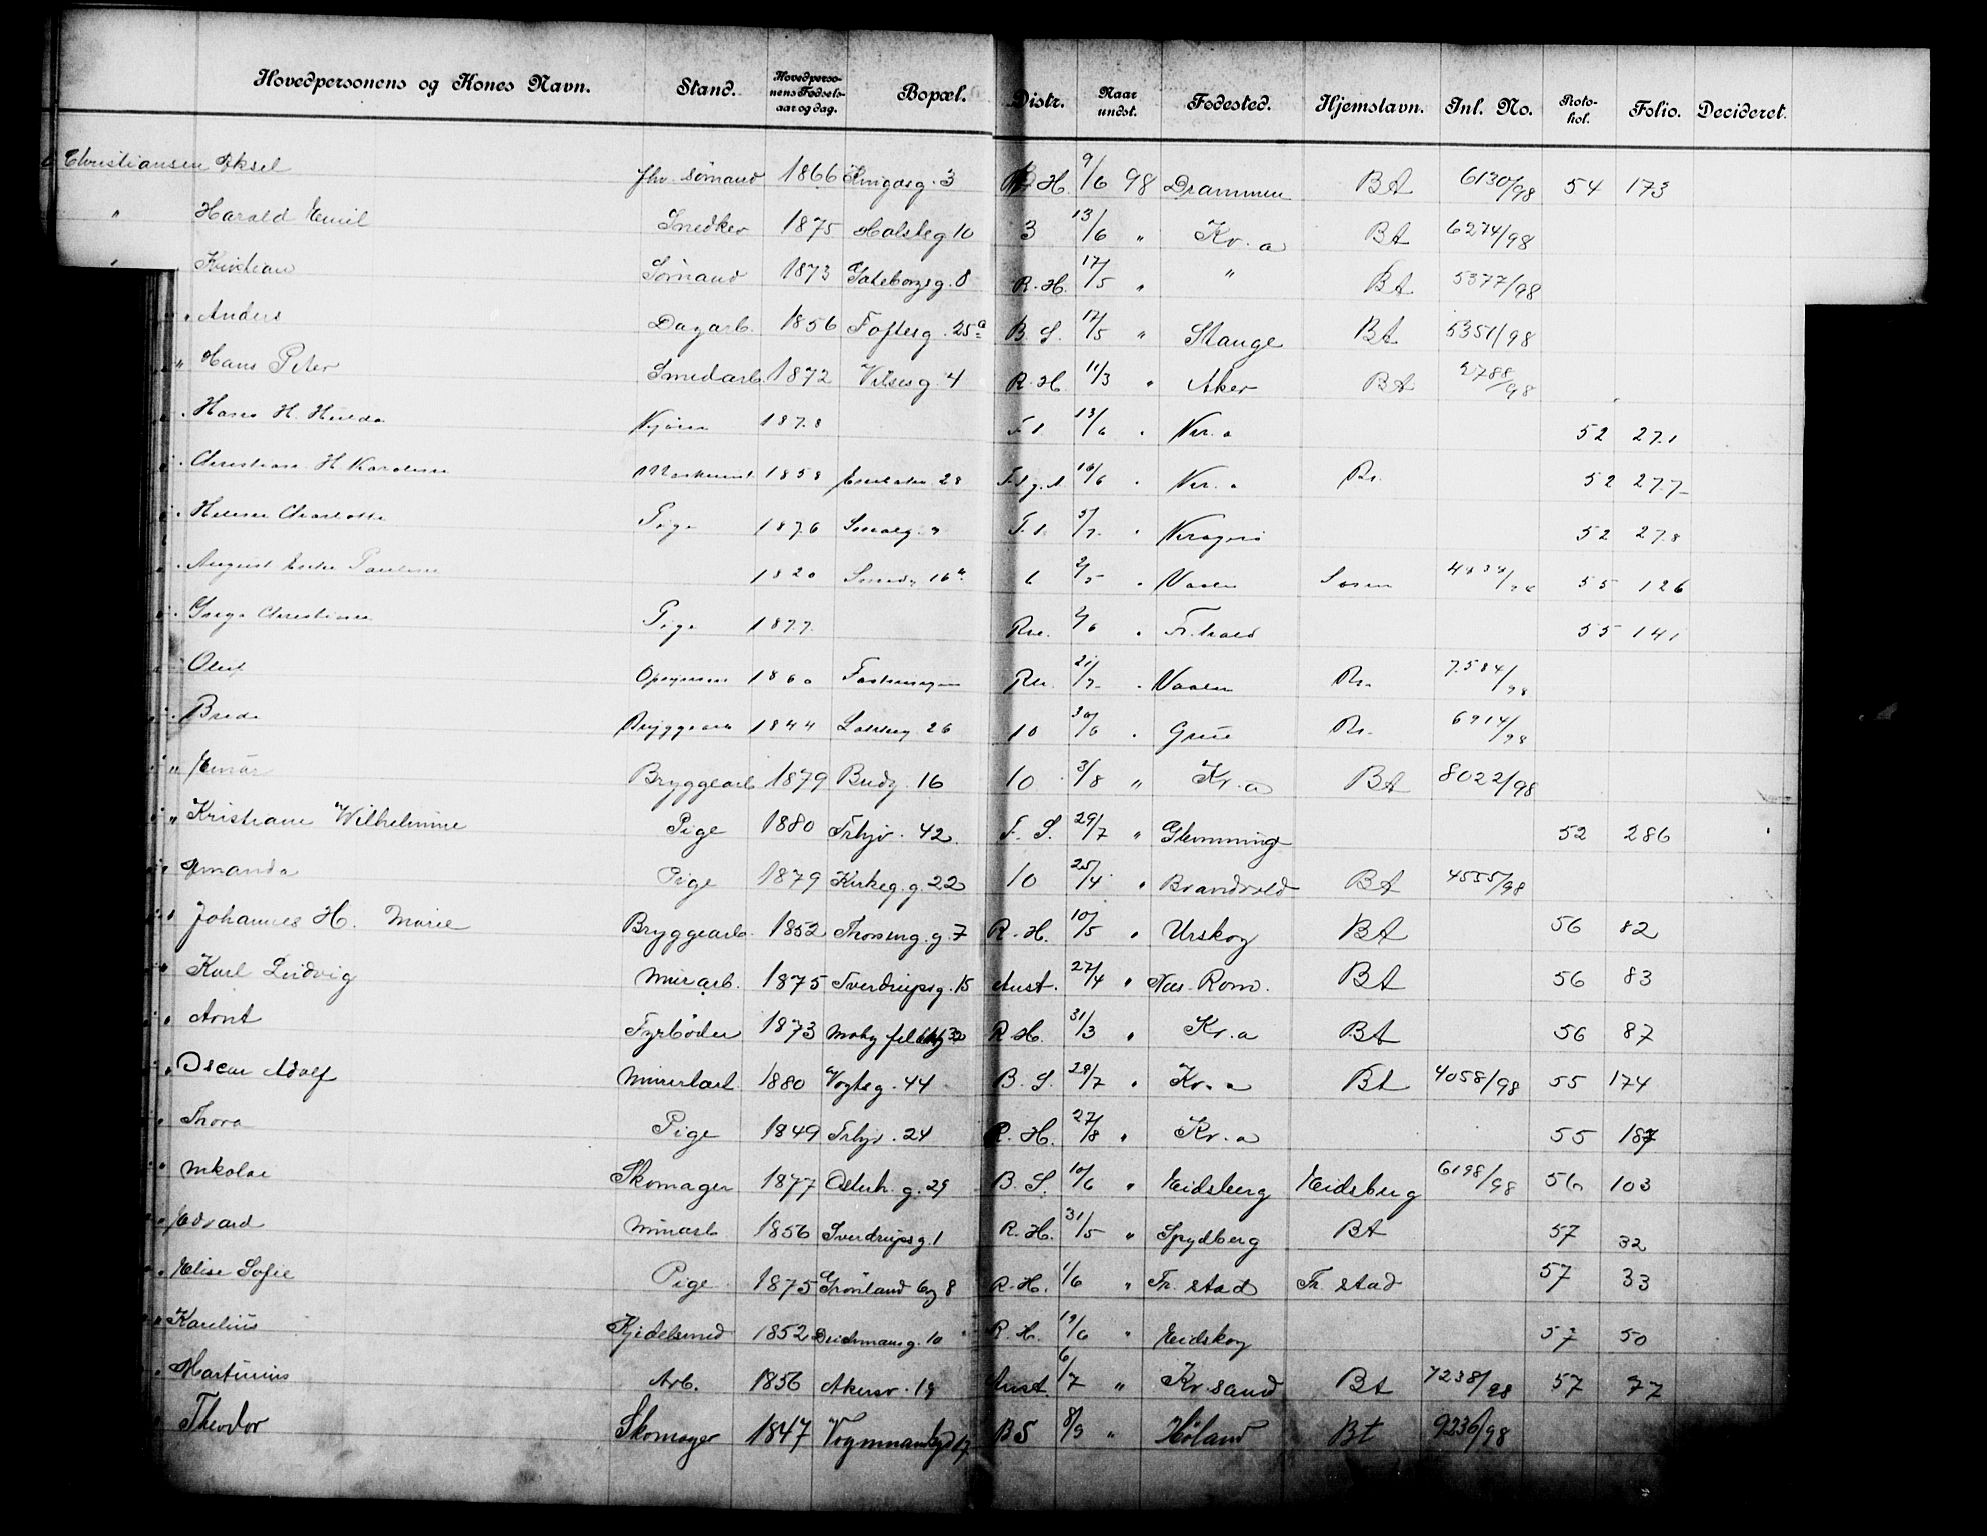 Hovedpersonens og Kones Navn. Stand. Hovedpersonens Fødselsaar og dag. Bopæl. Distr. Naar undst. Fødested. Hjemstavn. Inl. No. Protokol. Folio. Decideret.
Christiansen Aksel fhv. Sømand 1866 3 R. H. 9/6 98 Drammen BA 6130/98 54 173
" Harald Emil Snedker 1875 Holsteg 10 3 13/6 " Kr.a BA 6274/98
" Kristian Sømand 1873 Goteborgsg. 8 R. H. 17/5 " " BA 5377/98
" Anders Dagarb. 1856 Toftesg. 25a B. S. 17/5 " Stange BA 5351/98
" Hans Peter Smedarb. 1872 Vibesg 4 R. H. 11/3 " Aker BA 2788/98
" Hans H. Hulda 1878 F1. 13/6 " Kr.a 52 271
" Christian H. Karoline 1858 28 16/6 " Kr.a Kr. 52 277
" Helene Charlotte Pige 1876 Smalg. F.1. 5/7 " Kragerø 52 278
" August 1820 Smedg 16a 6 2/5 " Vaaler 55 126
" Inga Christiane Pige 1877 2/6 " Fr.hald 55 141
" Oluf Opsynsm 1860 21/7 " Vaaler Kr. 7584/98
" Bryggearb 1844 Lakkeg 26 10 30/6 " Grue Kr. 6914/98
" Einar Bryggearb 1879 Brug. 16 10 3/8 " Kr.a BA 8022/98
" Kristiane Wilhelmine Pige 1880 Trhjv. 42 F. S. 29/7 " Glemminge 52 286
" Amanda Pige 1879 Kirkeg. g. 22 10 25/4 " Brandvold BA 4555/98
" Johannes H. Marie Bryggearb. 1852 g. 7 R. H. 10/5 " Urskog BA 56 82
" Karl Ludvig Murarb. 1875 Sverdrupsg. 15 Anst. 27/4 " Nes. Rom. BA 56 83
" Arnt Fyrbøder 1873 R. H. 31/3 " Kr.a BA 56 87
" Oscar Adolf Murerlærl 1880 Vogtsg. 44 B. S. 28/7 " Kr.a Bt 4058/98 55 174
" Thora Pige 1849 Trhjv. 24 R. H. 27/8 " Kr.a 55 187
" Nikolai Skomager 1877 Osterh. g. 29 B. S. 10/6 " Eidsberg Eidsberg 6198/98 56 103
" Edvard Murarb 1856 Sverdrupsg. 1 R. H. 31/5 " Spydberg BA 57 32
" Elise Sofie Pige 1875 Grønland 6 og 8 R. H. 1/6 " Fr. stad Fr. stad 57 33
" Karelius Kjedelsmed 1852 Deichmansg. 10 R. H. 19/6 " Eidskog 57 50
" Martinius Arb. 1856 Akersv. 19 Anst. 6/7 " Kr.sand BA 7238/98 57 77
" Theodor Skomager 1847 Vognmandsgd 17 BS 8/9 " Høland Bt 9236/98